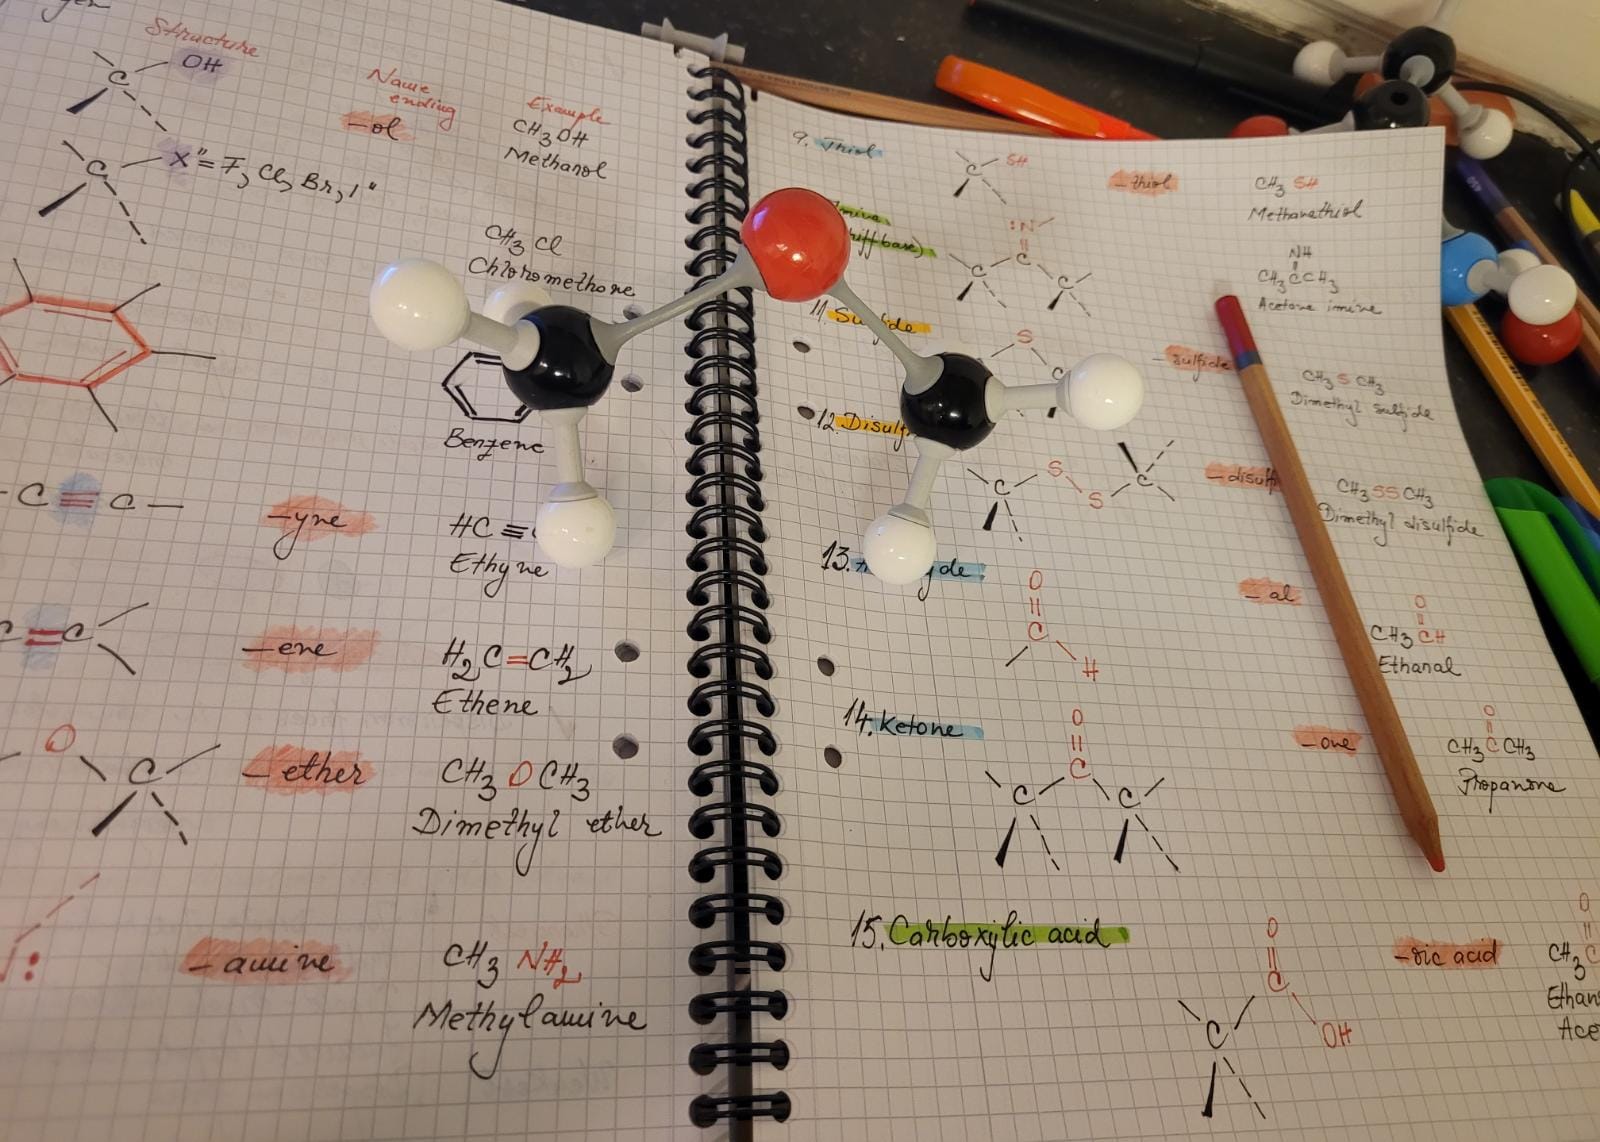 Structure
OH
C
Name
ending
-ol
Example
CH3OH
Methanol
C
X"= F, Cl, Br, I"
CH3Cl
Chloromethone
Benzene
-C≡C-
-yne
HC≡
Ethyne
C=C
-ene
H2C=CH2
Ethene
O
C
-ether
CH3OCH3
Dimethyl ether
-amine
CH3NH2
Methylamine
9. Thiol
C SH
-thiol
CH3SH
Methanethiol
:N
C
C C
NH
CH3CCH3
Acetone imine
11. Sulfide
S
C
-sulfide
CH3SCH3
Dimethyl sulfide
12.
C S
S C
CH3SSCH3
Dimethyl disulfide
13.
O
C
H
-al
O
CH3CH
Ethanal
14. Ketone
O
C
C C
-one
O
CH3CCH3
Propanone
15. Carboxylic acid
O
C
C OH
-oic acid
O
CH3C